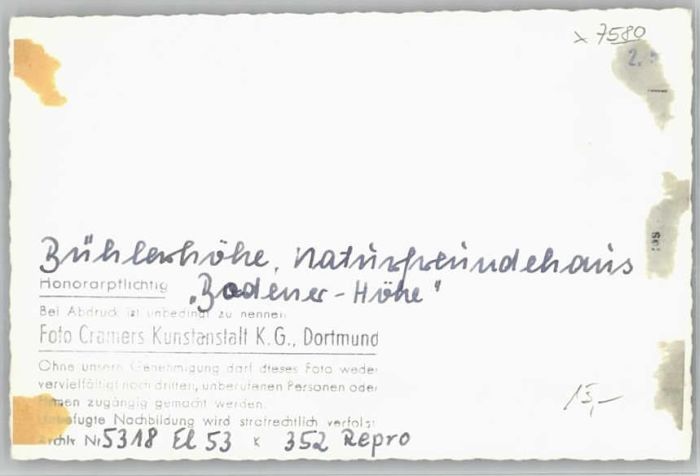 x 7580
2.
Bühlerhöhe, Naturfreundehaus
Honorarpflichtig „Badener-Höhe"
Bei Abdruck ist unbedingt zu nennen
Foto Cramers Kunstanstalt K.G., Dortmund
Ohne unsere Genehmigung darf dieses Foto weder
vervielfältigt noch dritten, unberufenen Personen oder
Firmen zugängig gemacht werden.
Unbefugte Nachbildung wird strafrechtlich verfolgt
15,-
Archiv Nr 5318 El 53 K 352 Repro